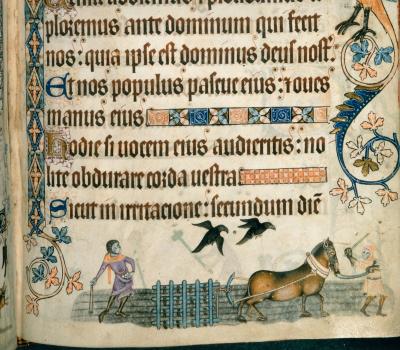 ploremus ante dominum qui fecit
nos : quia ipse est dominus deus nost᷑.
Et nos populus pascue eius : ⁊ oues
manus eius
Hodie si uocem eius audieritis : no
lite obdurare corda uestra :
Sicut in irritacione : secundum diē